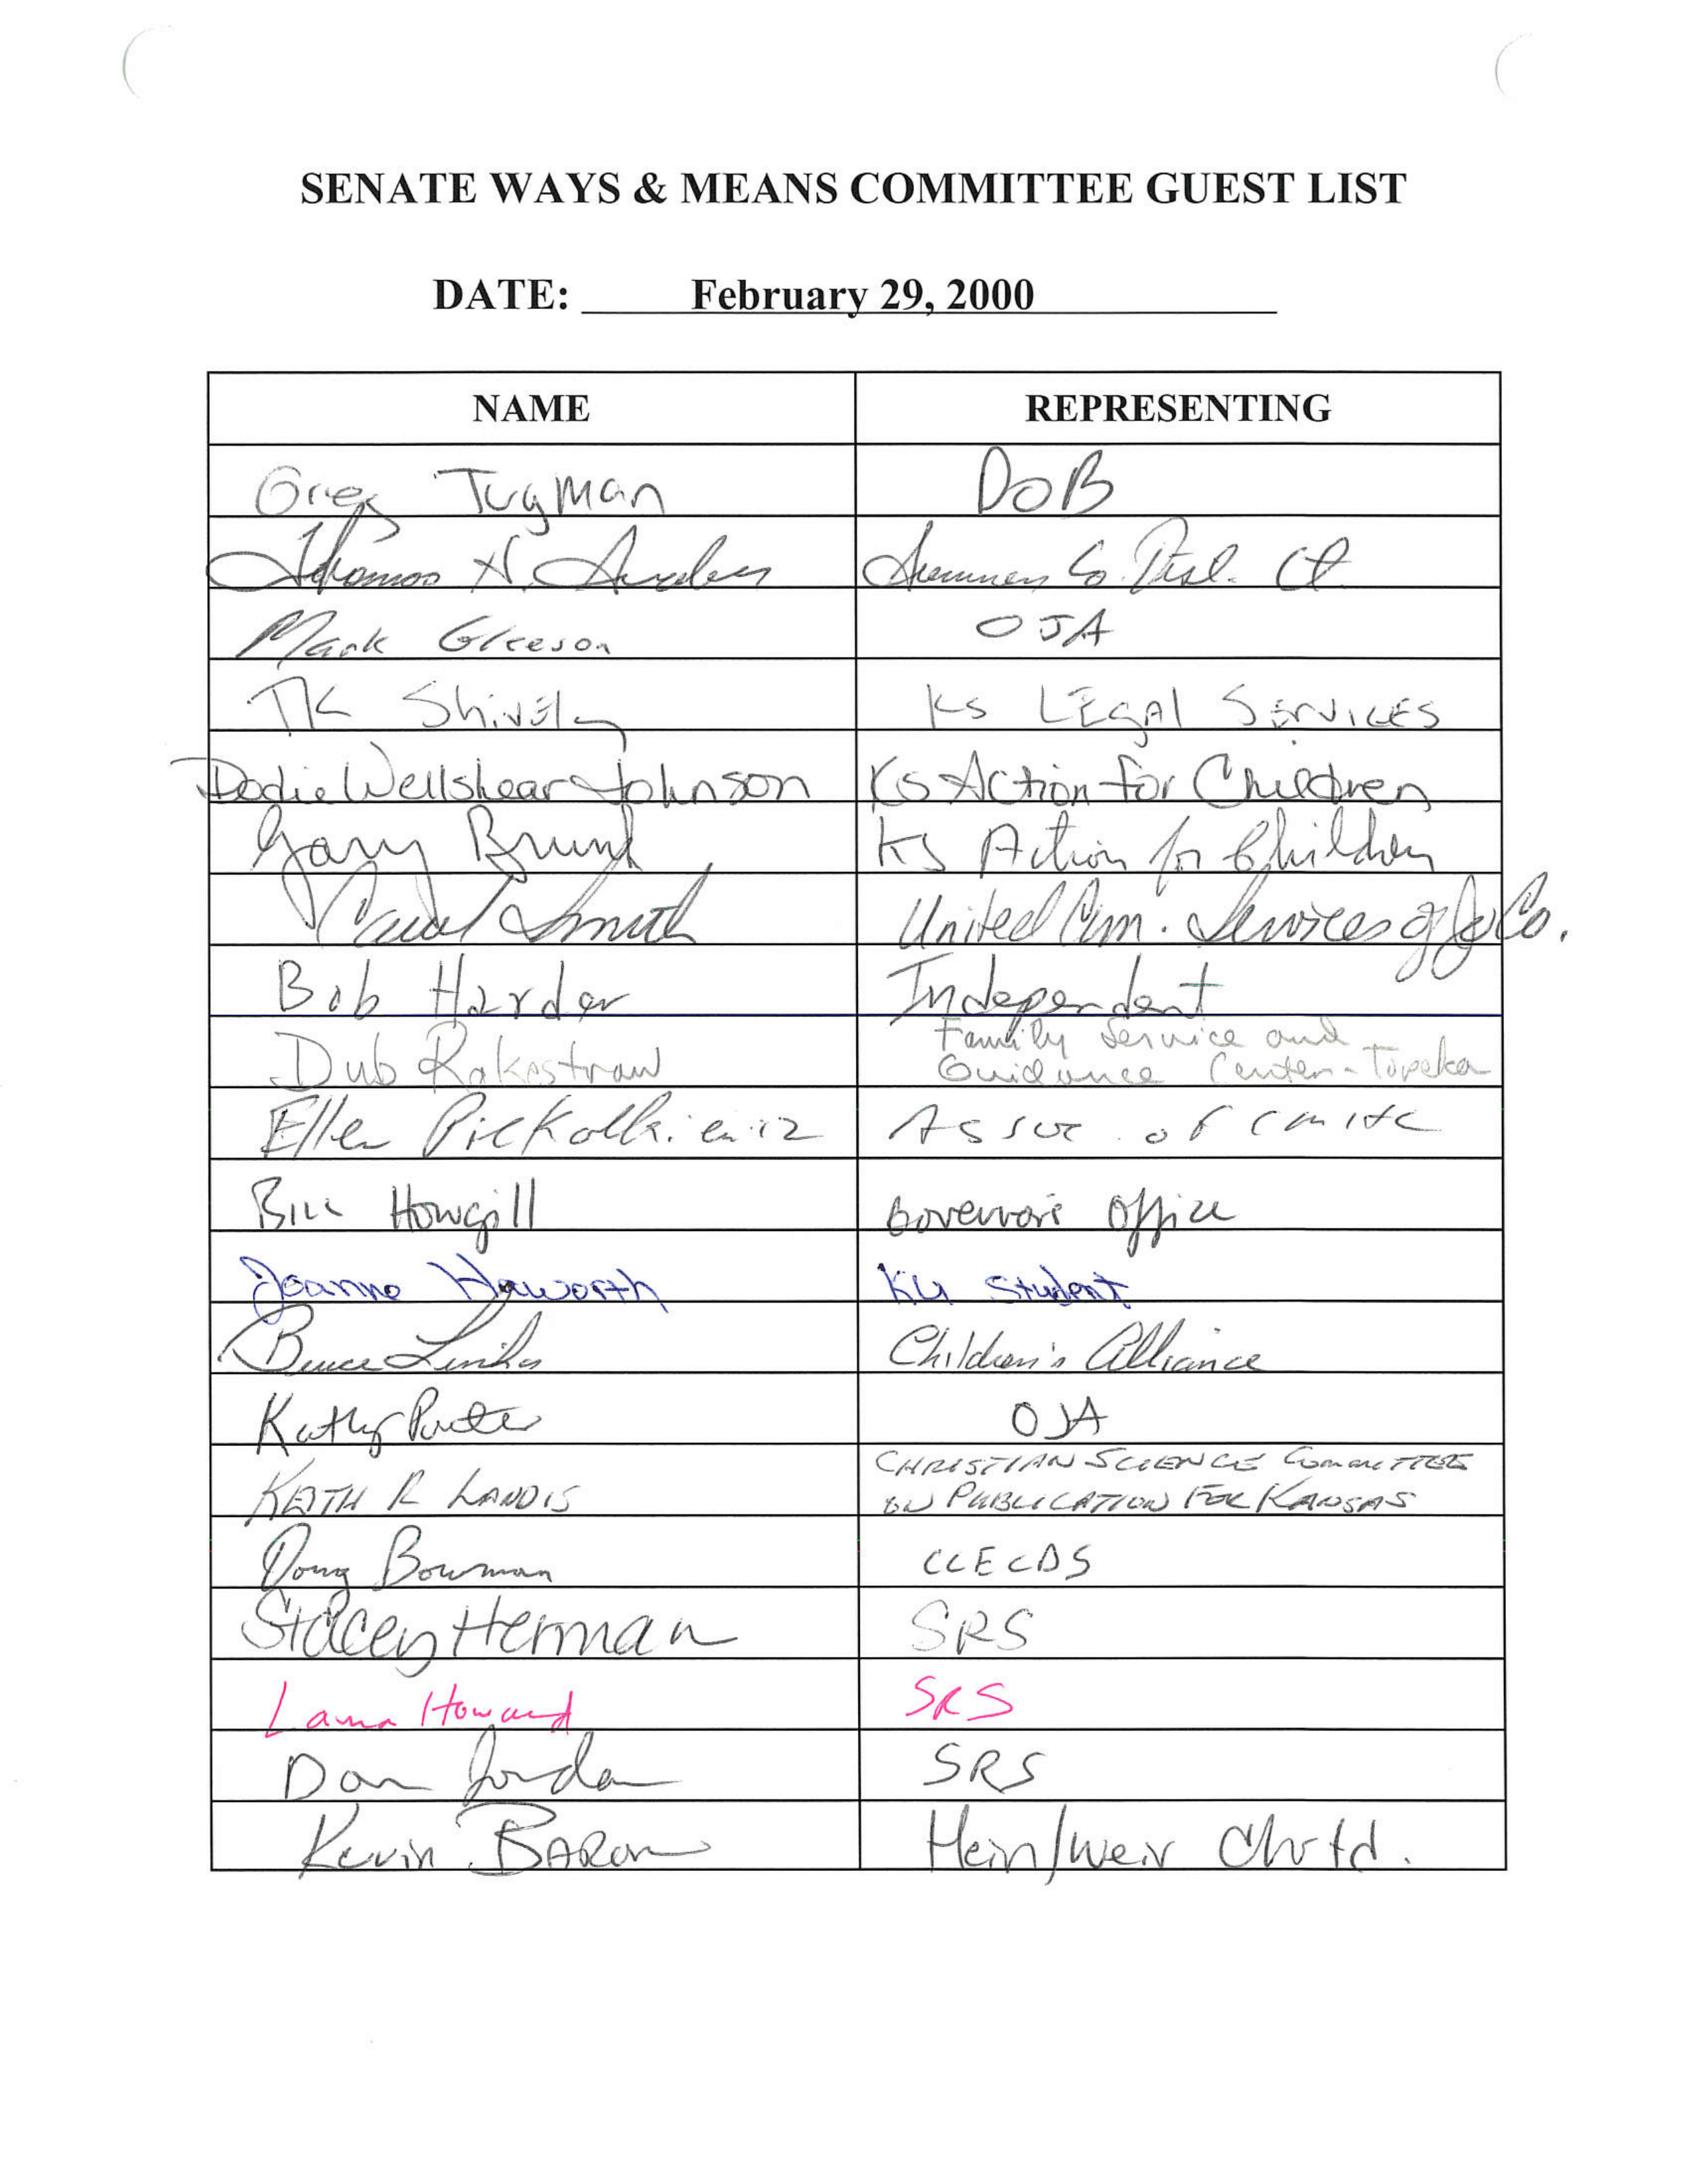 SENATE WAYS & MEANS COMMITTEE GUEST LIST
DATE: February 29, 2000
NAME REPRESENTING
Greg Tugman DOB
Thomas H. Sumner Co. Dist. Ct.
Mark Gleeson OJA
TK Shively KS LEGAL SERVICES
Dodie Wellshear Johnson KS Action for Children
Gary Brunk KS Action for Children
Carol Smith United Com. Services of Jo Co.
Bob Harder Independent
Dub Rakestraw Family Service and
Guidance Center - Topeka
Ellen Assoc. of
Bill Howgill Governor's Office
Joanne Haworth KU Student
Bruce Linhos Children's Alliance
Kathy Porter OJA
KEITH R LANDIS CHRISTIAN SCIENCE COMMITTEE
ON PUBLICATION FOR KANSAS
Doug Bowman CCECDS
Stacey Herman SRS
Laura Howard SRS
Dan Jordan SRS
Kevin BARON Hein/Weir Chrtd.